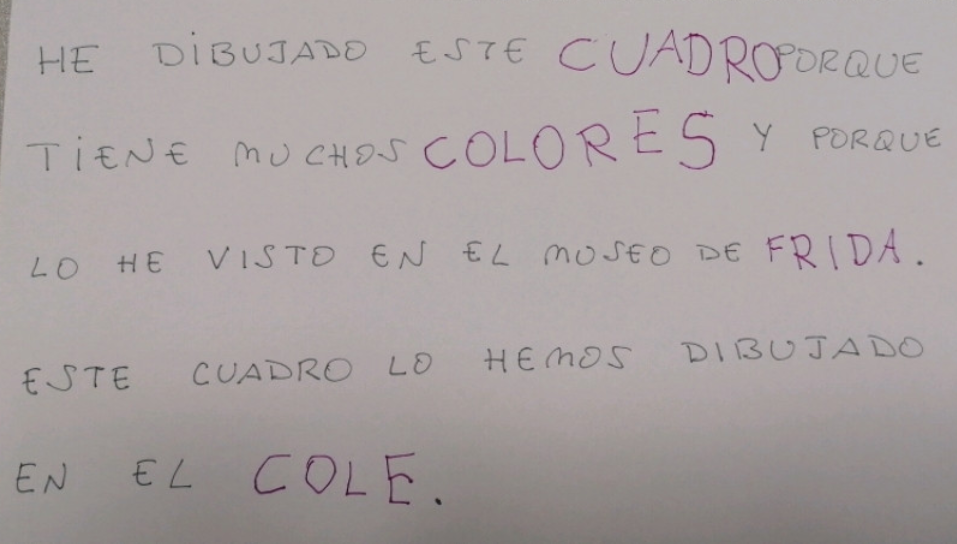 HE DIBUJADO ESTE CUADRO PORQUE
TIENE MUCHOS COLORES Y PORQUE
LO HE VISTO EN EL MUSEO DE FRIDA.
ESTE CUADRO LO HEMOS DIBUJADO
EN EL COLE.